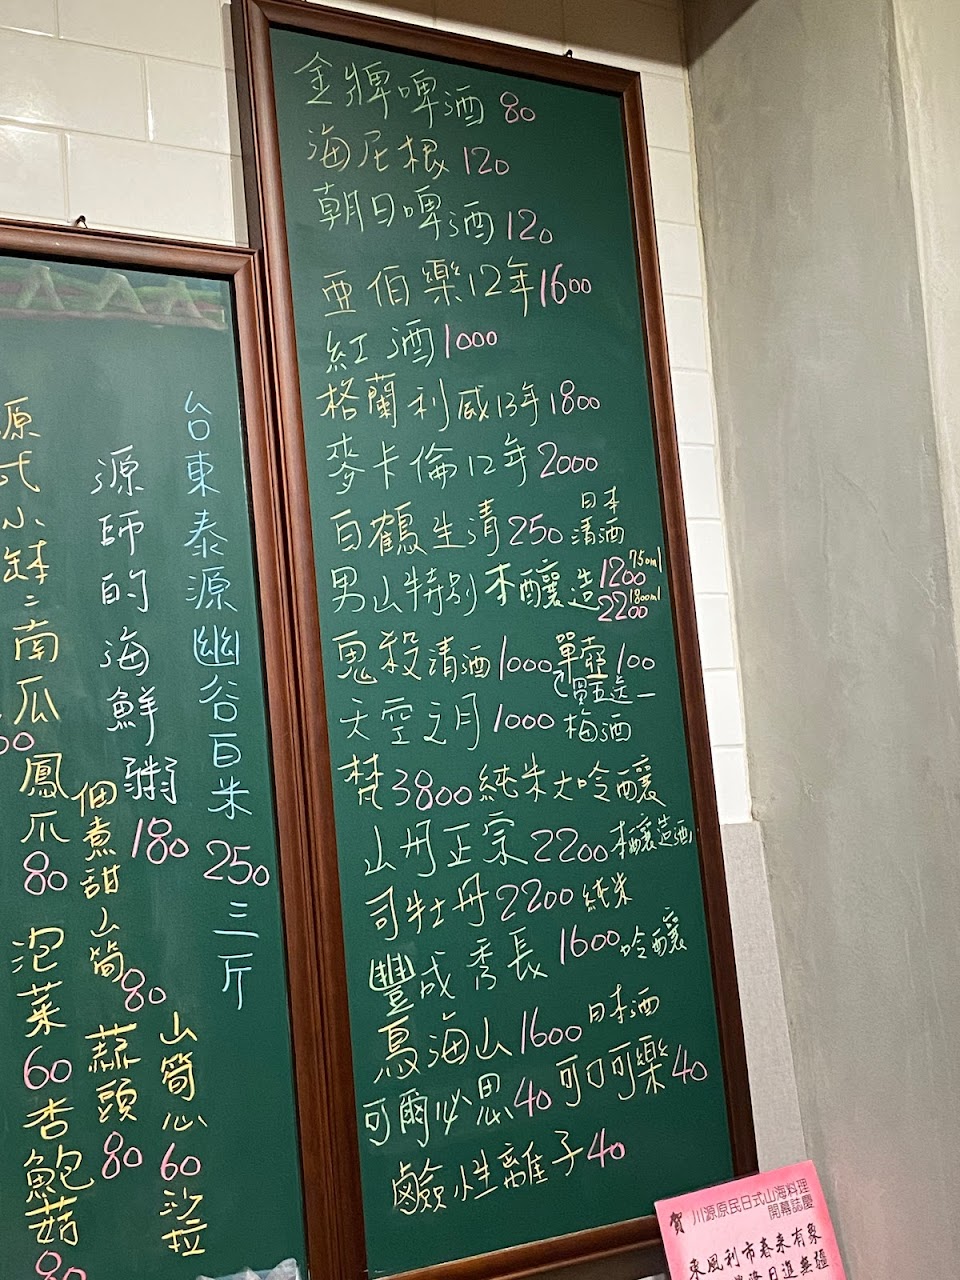 金牌啤酒 80
海尼根 120
朝日啤酒 120
亚伯樂12年 1600
紅酒 1000
格蘭利威13年 1800
麥卡倫12年 2000
白鶴生清 250 日本清酒
男山特別本釀造 1200 750ml
2200 1800ml
鬼殺清酒 1000 單壺 100
買五送一
天空之月 1000 梅酒
梵 3800 純米大吟釀
山丹正宗 2200 本釀造酒
司牡丹 2200 純米
豐成秀長 1600 吟釀
鳥海山 1600 日本酒
可爾必思 40 可口可樂 40
鹼性離子 40
台東泰源幽谷白米 250 三斤
源師的海鮮粥 180
山筒心 60 沙拉
佃煮甜山筒 80 蒜頭 80
源式小缽:南瓜
鳳爪 80 泡菜 60 杏鮑菇 80
賀 川源原民日式山海料理
開幕誌慶
東風利市春来有象
日進無疆